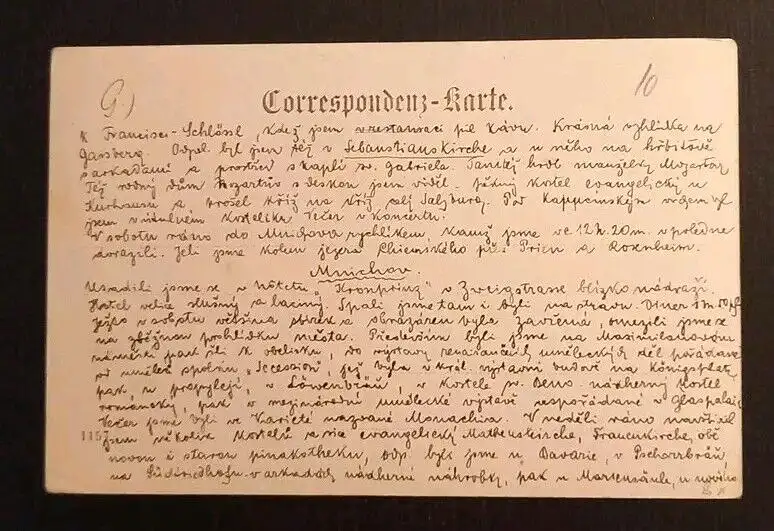 G.)
10
Correspondenz-Karte.
k Francisci-Schlössl, kdež jsem v restauraci pil kávu. Krásná vyhlídka na
Gaisberg. Odpol. byl jsem též v Sebastianskirche a u něho na hřbitově
s arkadami a prostřed s kaplí sv. Gabriela. Tamtéž hrob manželky Mozartovy
Též rodný dům Mozartův s deskou jsem viděl. pěkný kostel evangelický u
Kurhausu a prošel kříž na kříž celý Salzburg. Pod Kapucínským vrchem byl
jsem v kostelíku Večer v koncertu.
V sobotu ráno do Mnichova rychlíkem, kamž jsme ve 12 h. 20 m. v poledne
dorazili. Jeli jsme kolem jezera Chiemského přes Prien a Rosenheim.
Mnichov.
Usadili jsme se v hôtelu "Kronprinz" v Zweigstrasse blízko nádraží.
Hostel velice slušný a laciný. Spali jsme tam i byli na stravu. Diner 1 m
Ježto v sobotu většina sbírek a obrazáren byla zavřená, omezili jsme se
na zběžnou prohlídku města. Především byli jsme na Maximilianovu
náměstí pak šli k obelisku, do výstavy renaissančních uměleckých děl pořádané
od uměl. spolku "Secession", jež byla v král. výstavní budově na Königsplatz,
pak u propylejí, v Löwenbräu, v kostele sv. Beno. nádherný kostel
románský, pak v mezinárodní umělecké výstavě uspořádané v Glaspalais
Večer jsme byli ve Varieté nazvané Monachia. V neděli ráno navštívil
1157
jsem několik kostelů a sice evangelický Matheuskirche, Frauenkirche, obě
novou i starou pinakotheku, odp. byli jsme u Bavarie, v Pschorrbräu
na Südfriedhofu v arkádách nádherné náhrobky, pak u Mariensäule, u nového